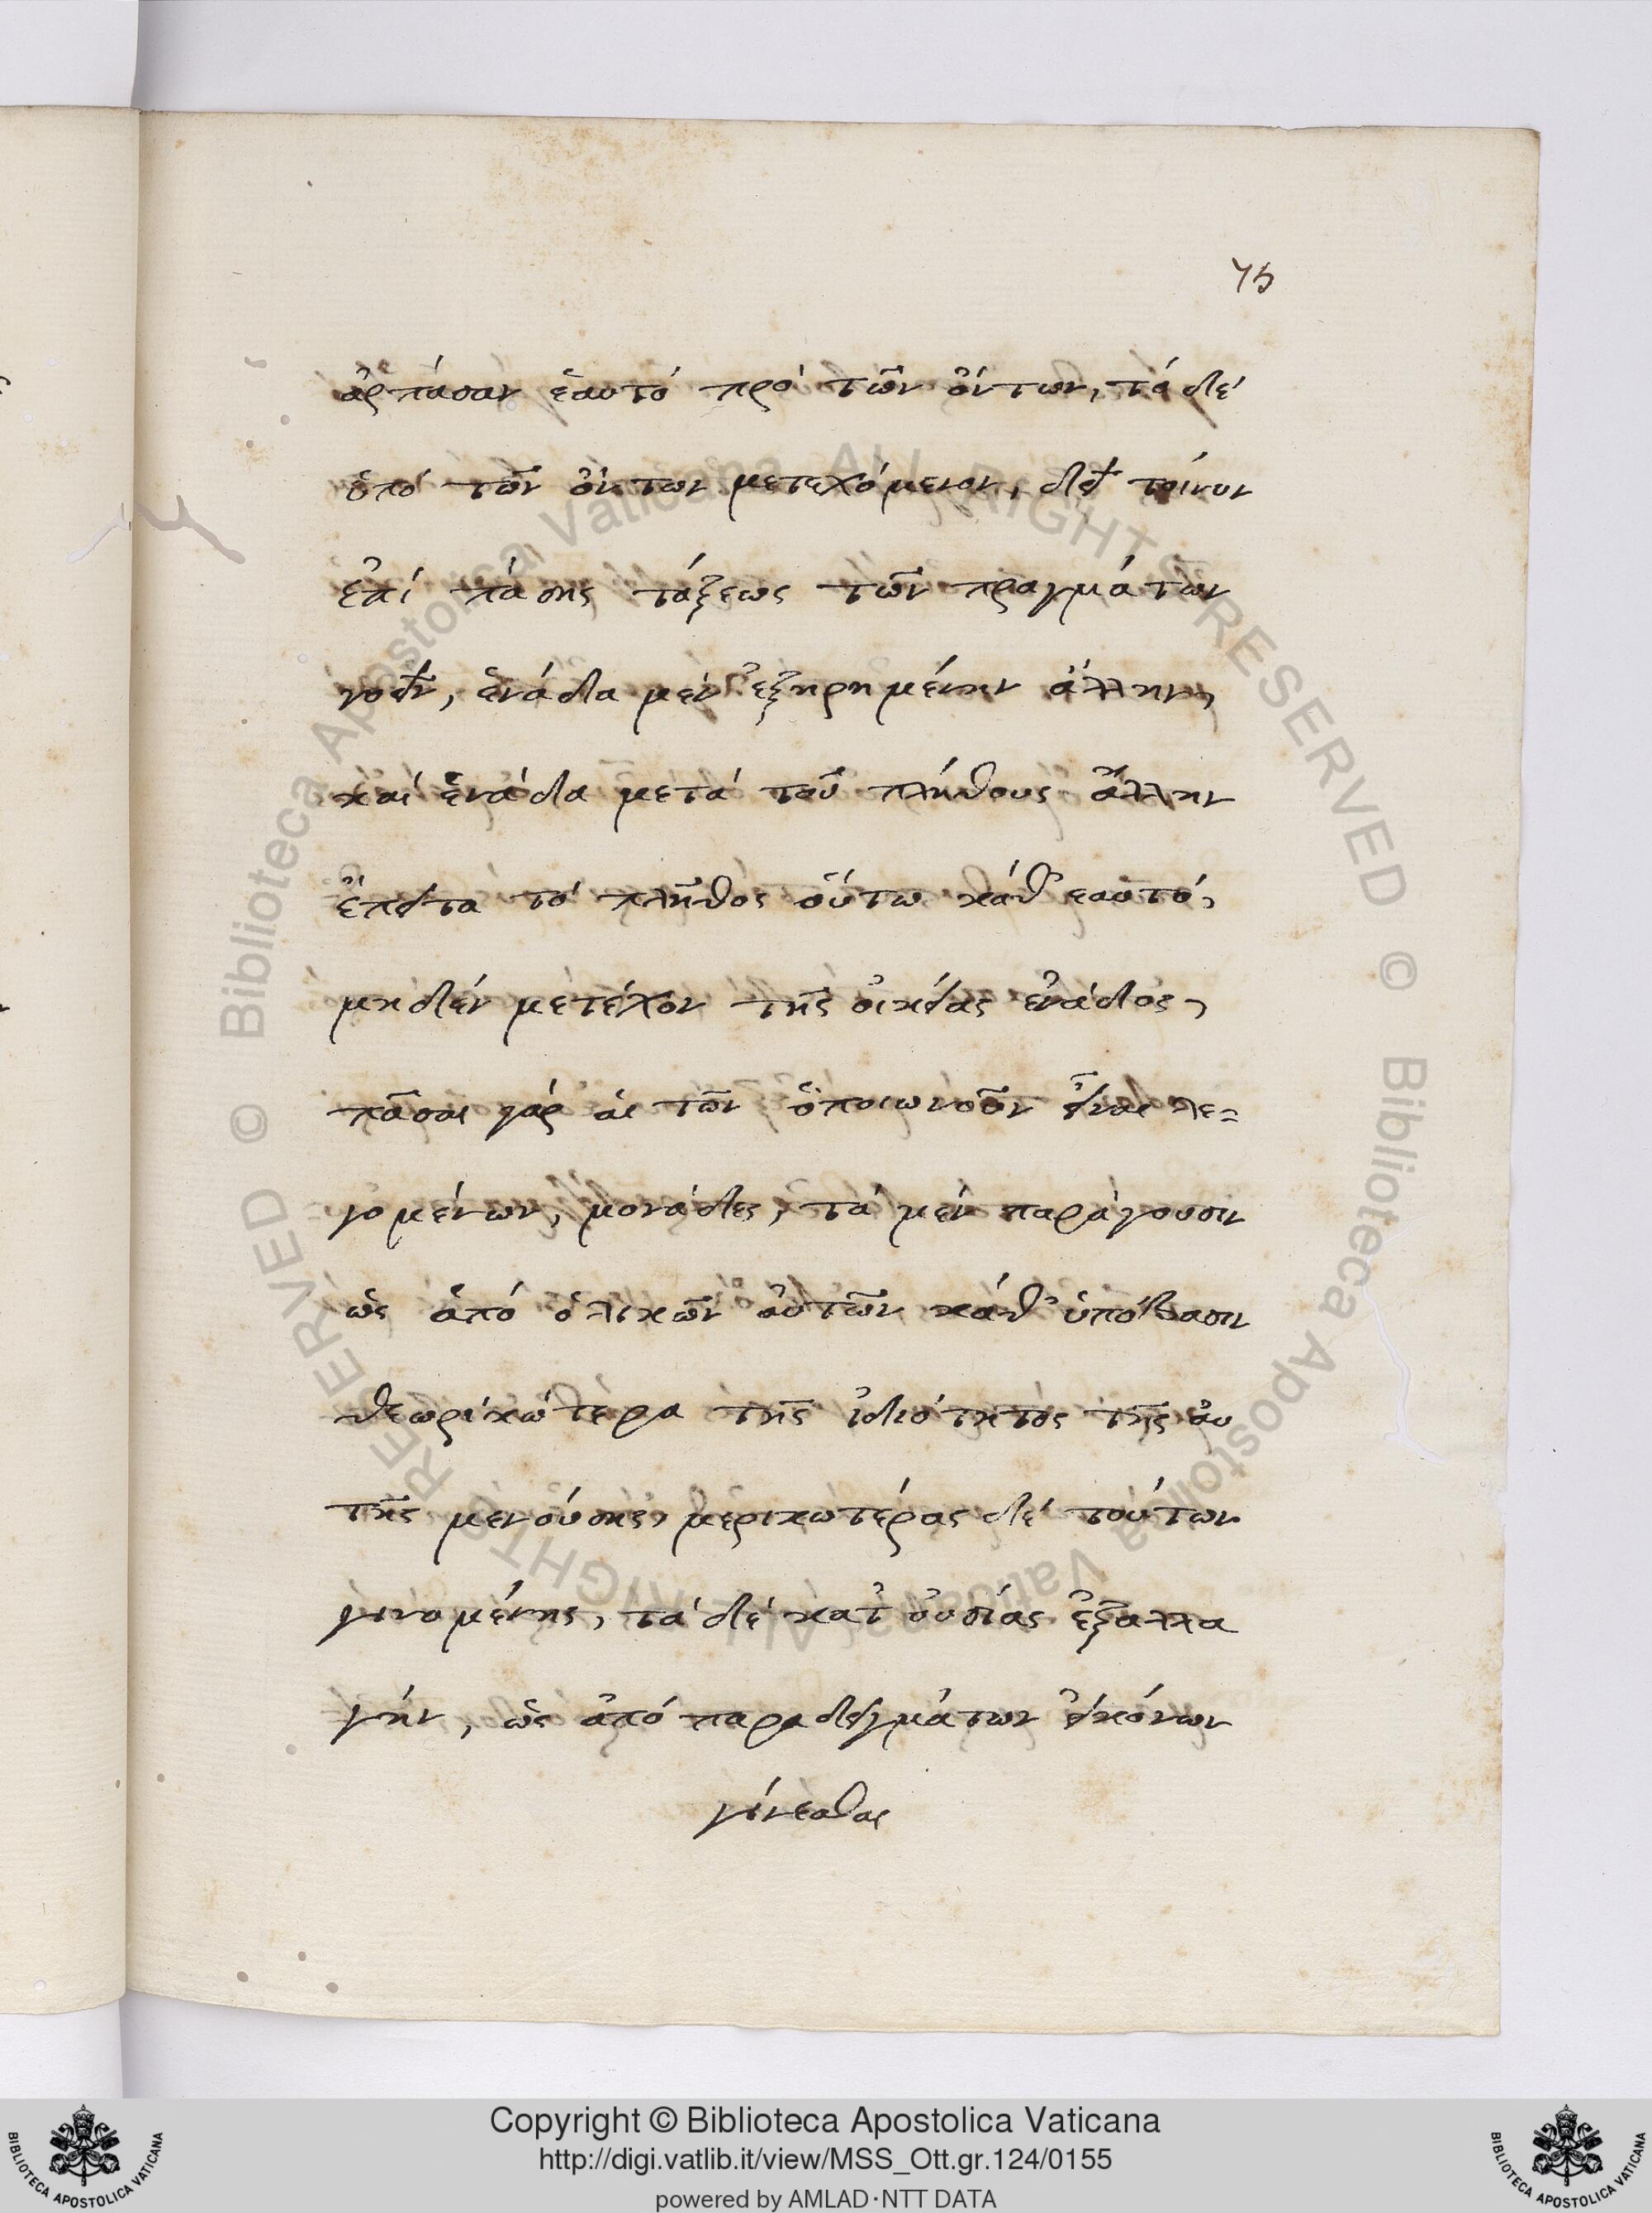 75
ἁρπάσαν ἑαυτό πρό τῶν ὄντων, τά δέ
ὑπό τῶν ὄντων μετεχόμενον, δεῖ τοίνυν
ἐπί πάσης τάξεως τῶν πραγμάτων
νοεῖν, ἑνάδα μέν ἐξηρημένην ἄλλην,
καί ἑνάδα μετά τοῦ πλήθους ἄλλην
ἔπειτα τό πλῆθος οὕτω κάθ' εαυτό,
μηδέν μετέχον τῆς οἰκείας ἑνάδος,
πᾶσαι γάρ αἱ τῶν ὁποιωνοῦν εἶναι λε=
γομένων, μονάδες, τά μέν παράγουσιν
ὡς ἀπό ὁλικῶν αὐτῶν κάθ' ὑπόβασιν
θεωρικώτερα τῆς ἰδιότητος τῆς αυ
τῆς μενούσης, μερικωτέρας δέ τούτων
γινομένης, τά δέ κατ' οὐσίας ἐξαλλα
γήν, ὡς ἀπό παραδειγμάτων εἰκόνων
γίνεσθαι
Copyright © Biblioteca Apostolica Vaticana
http://digi.vatlib.it/view/MSS_Ott.gr.124/0155
powered by AMLAD·NTT DATA
BIBLIOTECA APOSTOLICA VATICANA
BIBLIOTECA APOSTOLICA VATICANA
© Biblioteca Apostolica Vaticana ALL RIGHTS RESERVED
© Biblioteca Apostolica Vaticana ALL RIGHTS RESERVED